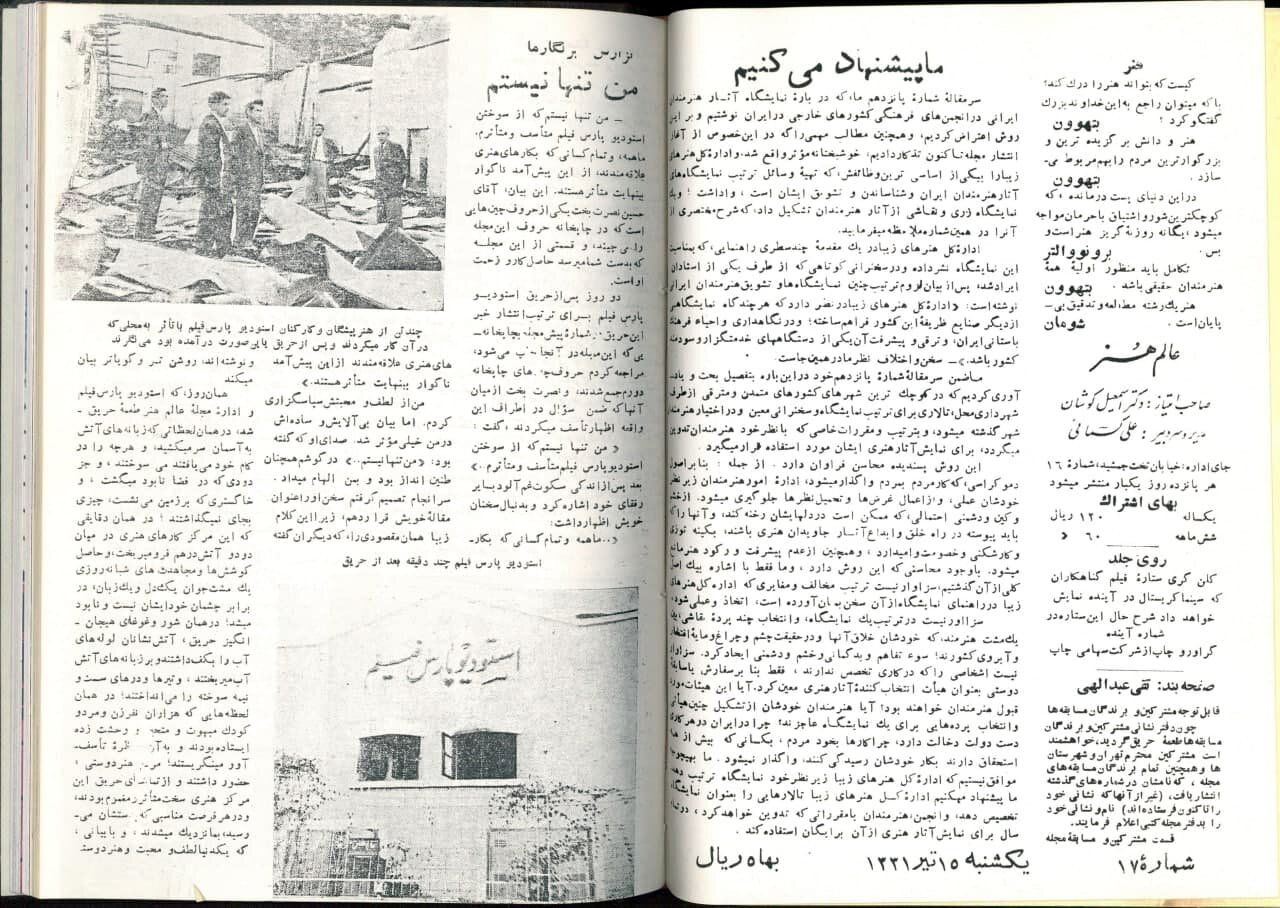 هنر
کیست که بتواند هنر را درك کند؟
یا که میتوان راجع به این خداوند بزرك
گفتگو کرد؟
بتهوون
هنر و دانش بر گزیده ترین و
بزرگوارترین مردم را بهم مربوط می-
سازد.
بتهوون
در این دنیای پست درمانده، که
کوچکترین شور و اشتیاق با حرمان مواجه
میشود، یگانه روزنهٔ گریز هنر است و
بس.
برونووالتر
تکامل باید منظور اولیهٔ همهٔ
هنرمندان حقیقی باشد.
بتهوون
هنر یك رشته مطالعه و تدقیق بی-
پایان است.
شومان
عالم هنر
صاحب امتیاز: دکتر اسمعیل کوشان
مدیر و سردبیر: علی کسمائی
جای اداره: خیابان تخت جمشید، شمارهٔ ۱۶
هر پانزده روز یکبار منتشر میشود
بهای اشتراك
یکساله ۱۲۰ ریال
شش ماهه ۶۰ «
روی جلد
کلن گری ستارهٔ فیلم گناهکاران
که سینما کریستال در آینده نمایش
خواهد داد شرح حال این ستاره در
شماره آینده
گراور و چاپ از شرکت سهامی چاپ
صفحه بند: تقی عبدالهی
قابل توجه مشترکین و برندگان مسابقه‌ها
چون دفتر نشانی مشترکین و برندگان
مسابقه‌ها طعمهٔ حریق گردید، خواهشمند
است مشترکین محترم تهران و شهرستان
ها و همچنین تمام برندگان مسابقه‌های
مجله، که نامشان در شماره‌های گذشته
انتشار یافت، (غیر از آنها که نشانی خود
را تا کنون فرستاده‌اند) نام و نشانی خود
را بدفتر مجله کتبی اعلام فرمایند.
قسمت مشترکین و مسابقهٔ مجله
ما پیشنهاد می کنیم
سرمقالهٔ شمارهٔ پانزدهم ما، که در بارهٔ نمایشگاه آثار هنرمندان
ایرانی در انجمن‌های فرهنگی کشورهای خارجی در ایران نوشتیم و بر این
روش اعتراض کردیم، و همچنین مطالب مهمی را که در این خصوص از آغاز
انتشار مجله تا کنون تذکار دادیم، خوشبختانه مؤثر واقع شد، و ادارهٔ کل هنرهای
زیبا را بیکی از اساسی ترین وظائفش، که تهیهٔ وسائل ترتیب نمایشگاه‌های
آثار هنرمندان ایران و شناساندن و تشویق ایشان است، واداشت؛ و یك
نمایشگاه زری و نقاشی از آثار هنرمندان تشکیل داد، که شرح مختصری از
آنرا در همین شماره ملاحظه میفرمایید.
ادارهٔ کل هنرهای زیبا در یك مقدمهٔ چند سطری راهنمایی، که بمناسبت
این نمایشگاه نشر داده و در سخنرانی کوتاهی که از طرف یکی از استادان
ایراد شد، پس از بیان لزوم ترتیب چنین نمایشگاه‌ها و تشویق هنرمندان ایرانی
نوشته است: «ادارهٔ کل هنرهای زیبا در نظر دارد که هر چند گاه نمایشگاهی
از دیگر صنایع ظریفهٔ این کشور فراهم ساخته؛ و در نگاهداری و احیاء فرهنگ
باستانی ایران، و ترقی و پیشرفت آن یکی از دستگاههای خدمتگزار و سودمند
کشور باشد.» - سخن و اختلاف نظر ما در همین جاست.
ما ضمن سرمقالهٔ شمارهٔ پانزدهم خود در این باره بتفصیل بحث و یاد-
آوری کردیم که در کوچك ترین شهرهای کشورهای متمدن و مترقی از طرف
شهرداری محل، تالاری برای ترتیب نمایشگاه و سخنرانی معین و در اختیار هنرمندان
شهر گذشته میشود، و بترتیب و مقررات خاصی که با نظر خود هنرمندان تدوین
میگردد، برای نمایش آثار هنری ایشان مورد استفاده قرار میگیرد.
این روش پسندیده محاسن فراوان دارد. از جمله: بنا بر اصول
دموکراسی، که کار مردم بمردم واگذار میشود، ادارهٔ امور هنرمندان زیر نظر
خودشان عملی، و از اعمال غرض‌ها و تحمیل نظرها جلوگیری میشود. از خشم
و کین و دشمنی احتمالی، که ممکن است در دلهایشان رخنه کند، و آنها را که
باید پیوسته در راه خلق و ابداع آثار جاویدان هنری باشند، بکینه توزی
و کارشکنی و خصومت وامیدارد، و همچنین از عدم پیشرفت و رکود هنر مانع
میشود. با وجود محاسنی که این روش دارد، و ما فقط با اشاره بیك اصل
کلی از آن گذشتیم، سزاوار نیست ترتیب مخالف و مغایری که اداره کل هنرهای
زیبا در راهنمای نمایشگاه از آن سخن بمیان آورده است، اتخاذ و عملی شود.
سزاوار نیست در ترتیب یك نمایشگاه، و انتخاب چند پردهٔ نقاشی، بین
یك مشت هنرمند، که خودشان خلاق آنها و در حقیقت چشم و چراغ و مایهٔ افتخار
و آبروی کشورند؛ سوء تفاهم و بدگمانی و خشم و دشمنی ایجاد کرد. سزاوار
نیست اشخاصی را که در کاری تخصص ندارند، فقط بنا بر سفارش یا سابقهٔ
دوستی بعنوان هیأت انتخاب کنندهٔ آثار هنری معین کرد. آیا این هیئات مورد
قبول هنرمندان خواهند بود؟ آیا هنرمندان خودشان از تشکیل چنین هیأتی
و انتخاب پرده‌هایی برای یك نمایشگاه عاجزند؟ چرا در ایران در هر کاری
دست دولت دخالت دارد، چرا کارها بخود مردم، بکسانی که بیش از همه
استحقاق دارند بکار خودشان رسیدگی کنند، واگذار نمیشود. ما بهیچوجه
موافق نیستیم که ادارهٔ کل هنرهای زیبا زیر نظر خود نمایشگاه ترتیب دهد.
ما پیشنهاد میکنیم ادارهٔ کل هنرهای زیبا تالارهایی را بعنوان نمایشگاه
تخصیص دهد، و انجمن هنرمندان با مقرراتی که تدوین خواهد کرد، در تمام
سال برای نمایش آثار هنری از آن برایگان استفاده کند.
شمارهٔ ۱۷
یکشنبه ۱۵ تیر ۱۳۳۱
بها ۵ ریال
گزارش برنگارها
من تنها نیستم
- من تنها نیستم که از سوختن
استودیو پارس فیلم متأسف و متأثرم.
ما همه، و تمام کسانی که بکارهای هنری
علاقه‌مندند، از این پیش آمد ناگوار
بینهایت متأثر هستند. این بیان، آقای
حسین نصرت بخت یکی از حروف چین‌هایی
است که در چاپخانه حروف این مجله
را می‌چیند، و قسمتی از این مجلـه
که بدست شما میرسد حاصل کار و زحمت
او است.
دو روز پس از حریق استودیو
پارس فیلم برای ترتیب انتشار خبر
این حریق در شمارهٔ پیش مجله بچاپخانه-
یی که این مجله در آنجا چاپ می‌شود،
مراجعه کردم حروف چین های چاپخانه
دورم جمع شدند، و نصرت بخت از میان
آنها که ضمن سؤال در اطراف این
واقعه اظهار تأسف میکردند، گفت:
«من تنها نیستم که از سوختن
استودیو پارس فیلم متأسف و متأثرم.»
بعد پس از اندکی سکوت غم آلود بسایر
رفقای خود اشاره کرد و بدنبال سخنان
خویش اظهار داشت:
«.. ما همه و تمام کسانی که بکار-
چند تن از هنرپیشگان و کارکنان استودیو پارس فیلم با تأثر به محلی که
در آن کار میکردند و پس از حریق باین صورت درآمده بود می‌نگرند
های هنری علاقه‌مندند از این پیش آمد
ناگوار بینهایت متأثر هستند.»
من از لطف و محبتش سپاسگزاری
کردم. اما بیان بی‌آلایش و ساده‌اش
در من خیلی مؤثر شد. صدای او که گفته
بود: «من تنها نیستم..» در گوشم همچنان
طنین انداز بود و بمن الهام میداد.
سرانجام تصمیم گرفتم سخن او را عنوان
مقالهٔ خویش قرار دهم، زیرا این کلام
زیبا همان مقصودی را، که دیگران گفته
استودیو پارس فیلم چند دقیقه بعد از حریق
استودیو پارس فیلم
و نوشته‌اند، روشن تر و گویاتر بیان
میکند
همان روز، که استودیو پارس فیلم
و ادارهٔ مجلهٔ عالم هنر طعمهٔ حریق-
شد، در همان لحظاتی که زبانه‌های آتش
به آسمان سر میکشید، و هرچه را در
کام خود می‌یافتند می سوختند، و جز
دودی که در فضا نابود میگشت، و
خاکستری که بر زمین می نشست، چیزی
بجای نمیگذاشتند؛ در همان دقایقی
که این مرکز کارهای هنری در میان
دود و آتش درهم فرو میریخت، و حاصل
کوشش‌ها و مجاهدت های شبانه روزی
یك مشت جوان یکدل و یك زبان، در
برابر چشمان خودایشان نیست و نابود
میشد؛ در همان شور و غوغای هیجان-
انگیز حریق، آتش نشانان لوله‌های
آب را بکف داشتند و بر زبانه‌های آتش
آب میریختند، و تیرها و درهای سست و
نیمه سوخته را می‌انداختند؛ در همان
لحظه‌هایی که هزاران نفر زن و مرد و
کودك مبهوت و متحیر و وحشت زده
ایستاده بودند و به آن منظرهٔ تأسف-
آور مینگریستند؛ مردم هنردوستی،
حضور داشتند و از تماشای حریق این
مرکز هنری سخت متأثر و مغموم بودند،
و در هر فرصت مناسبی که دستشان می-
رسید، بما نزدیك میشدند، و با بیانی،
که یکدنیا لطف و محبت و هنردوستی